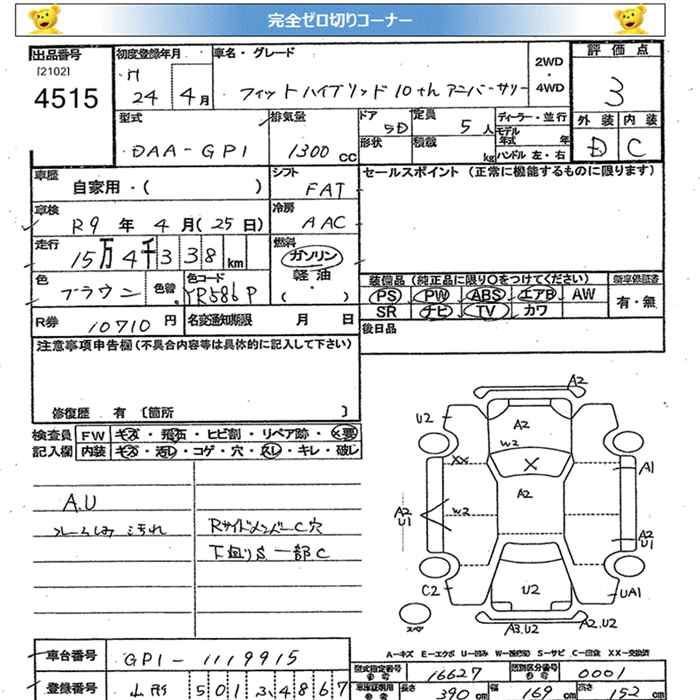 完全ゼロ切りコーナー
出品番号
[2102]
4515
初度登録年月
H 24 4月
車名・グレード
フィットハイブリッド 10th アニバーサリー
2WD
・
4WD
評価点
3
外装 内装
D C
型式
DAA-GP1
排気量
1300 cc
ドア
5D
定員
5人
形状
積載
kg
ディーラー・並行
モデル年式 年
ハンドル 左・右
車歴
自家用・( )
シフト
FAT
セールスポイント (正常に機能するものに限ります)
車検
R9 年 4月(25日)
冷房
AAC
走行
15万4千338km
燃料
ガソリン
軽油
( ・ )
色
ブラウン
色替
色コード
YR586P
装備品 (純正品に限り○をつけてください)
PS PW ABS エアB AW
SR ナビ TV カワ
新車保証書
有・無
R券 10710円
名変通知期限 月 日
後日品
注意事項申告欄(不具合内容等は具体的に記入して下さい)
修復歴 有 [箇所 ]
検査員
記入欄
FW キズ・飛石・ヒビ割・リペア跡・X要
内装 キズ・汚レ・コゲ・穴・スレ・キレ・破レ
A.U
汚れ
Rサイドメンバー C穴
下廻りS 一部C
A2
U2
A2
W2
XX
X
A1
A2
A2
U1
W2
A2
U1
C2
U2
UA1
スペア
A3.U2
A2.U2
A-キズ E-エクボ U-凹み W-補修跡 S-サビ C-腐食 XX-交換済
車台番号
GP1-1119915
型式指定番号
16627
類別区分番号
0001
登録番号
山形 501 3 4867
長さ 390cm 幅 169cm 高さ 152cm